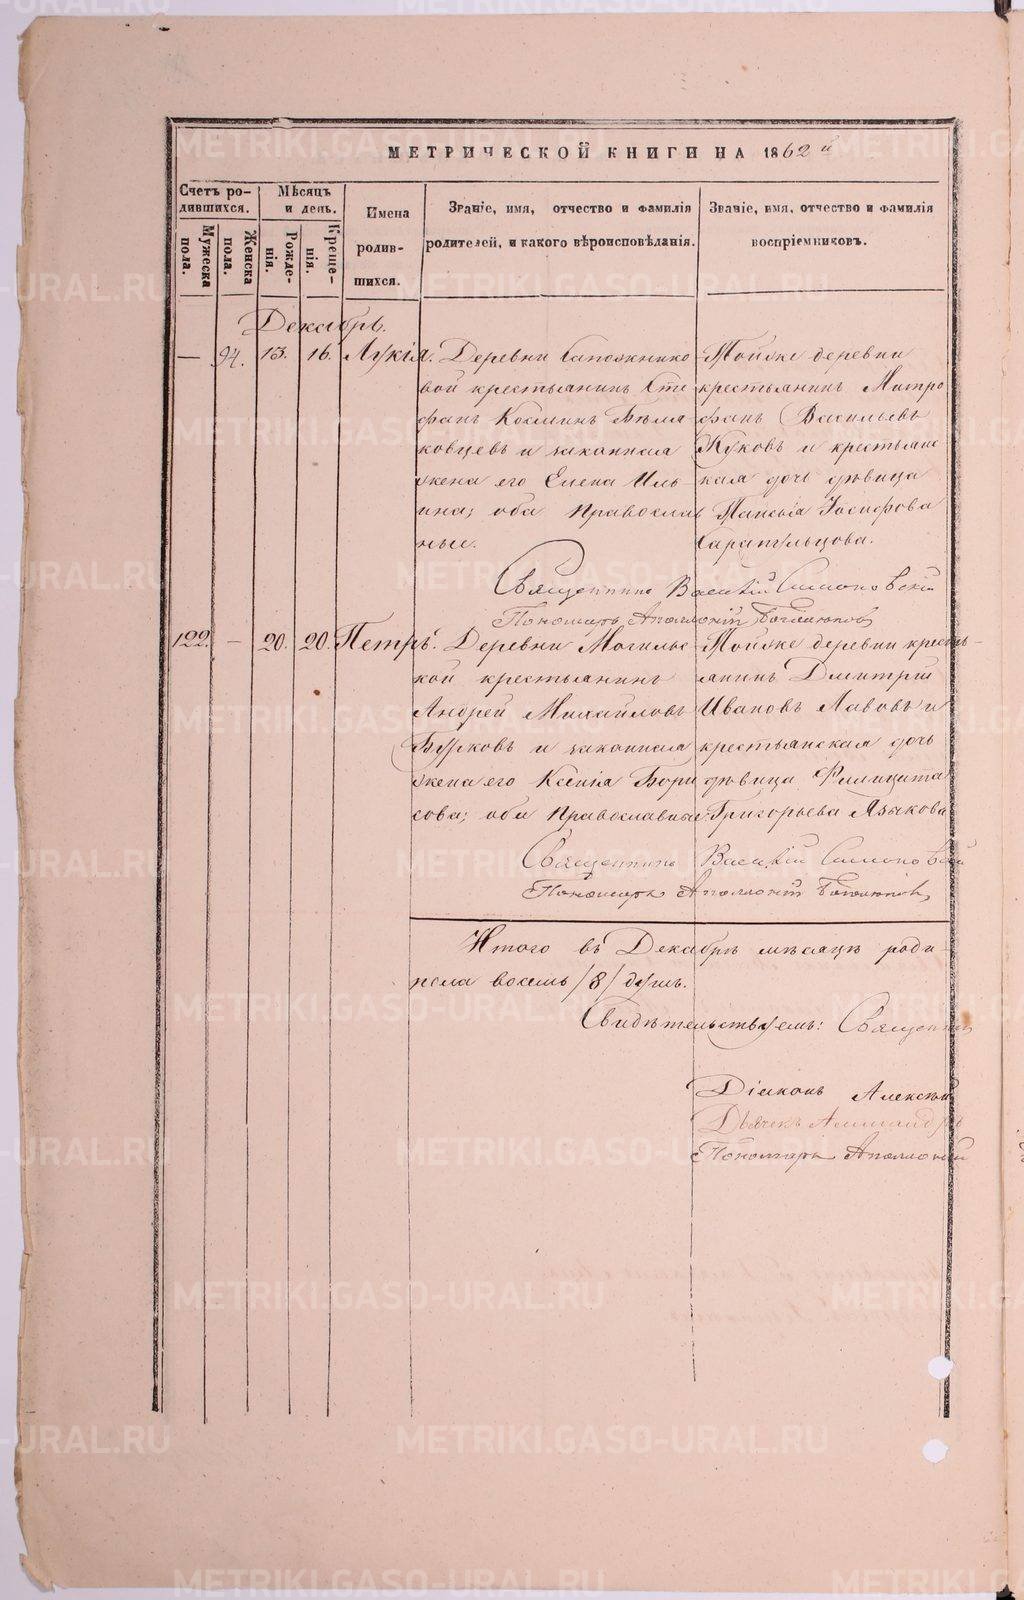 МЕТРИЧЕСКОЙ КНИГИ НА 1862й
Счетъ родившихся.
Мѣсяцъ и день.
Имена родившихся.
Званіе, имя, отчество и фамилія родителей, и какого вѣроисповѣданія.
Званіе, имя, отчество и фамилія воспріемниковъ.
Мужеска пола.
Женска пола.
Рожденія.
Крещенія.
Декабрь.
— 94. 13. 16. Лукія.
Деревни Сапожнико
вой крестьянинъ Сте
фанъ Косминъ Бѣла
ковцевъ и законная
жена его Елена Иль
ина; оба Православ
ные.
Тойже деревни
крестьянинъ Митро
фанъ Васильевъ
Жуковъ и крестьянс
кая дочь дѣвица
Таисія Іосифова
Сарапульцова.
Священникъ Василій Симоновскій
Пономарь Аполлоній
122. — 20. 20. Петръ.
Деревни Могильс
кой крестьянинъ
Андрей Михайловъ
Бурковъ и законная
жена его Ксенія Бори
сова; оба Православные.
Тойже деревни кресть-
янинъ Дмитрій
Ивановъ Лавовъ и
крестьянская дочь
дѣвица Филицата
Григорьева Языкова
Священникъ Василій Симоновскій
Пономарь Аполлоній
Итого въ Декабрѣ мѣсяцѣ роди-
лося восемь /8/ душъ.
Свидѣтельствуемъ: Священник
Діаконъ Алексѣй
Дьячекъ Александръ
Пономарь Аполлоній
METRIKI.GASO-URAL.RU